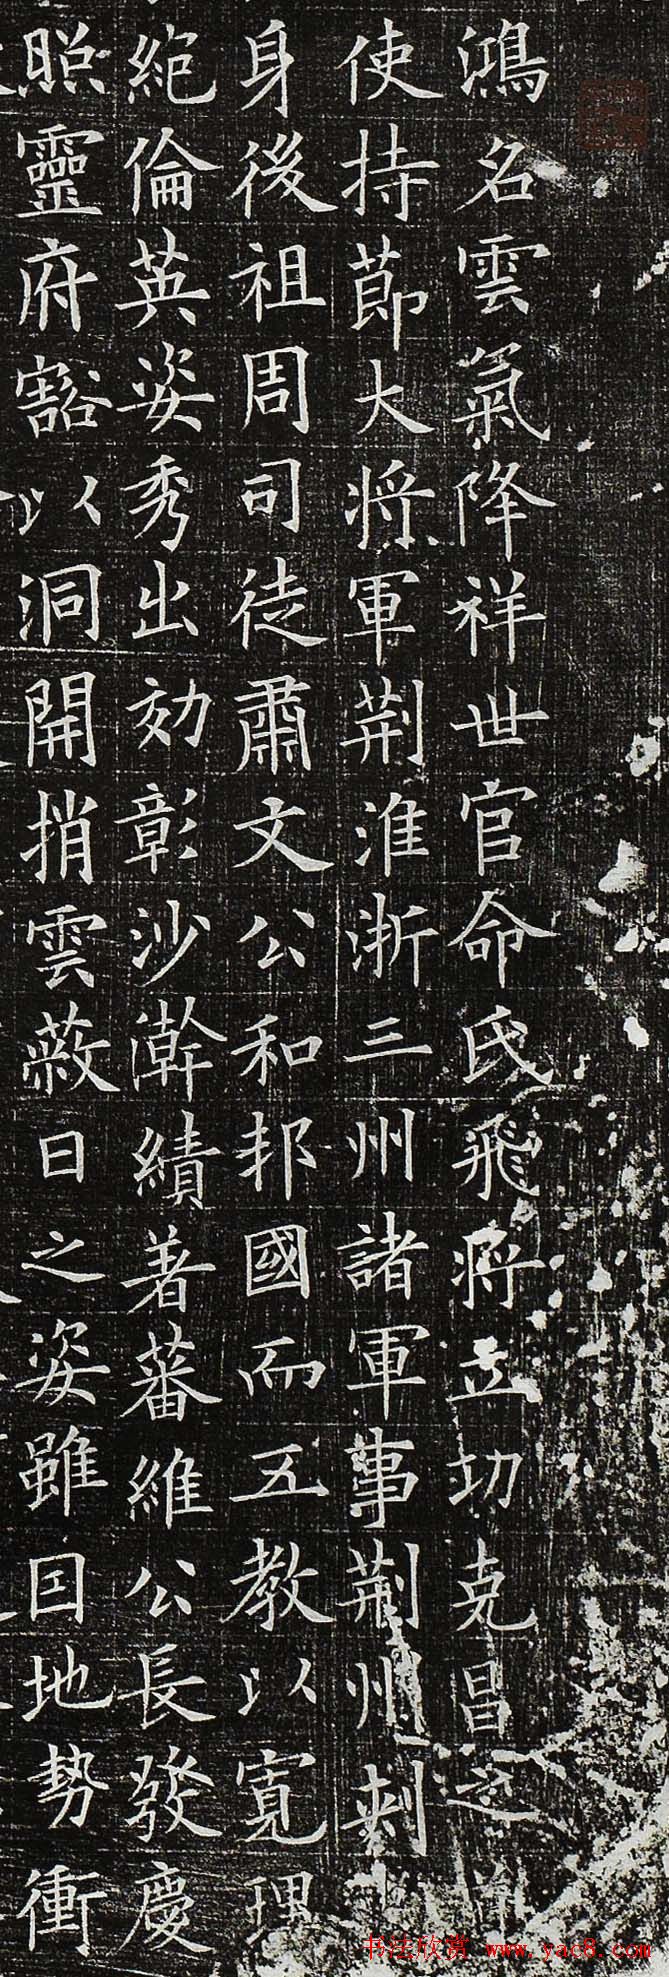 鴻名雲氣降祥世官命氏飛將立功克昌之
使持節大將軍荆淮浙三州諸軍事荆州刺
身後祖周司徒肅文公和邦國而五教以寬理
絶倫英姿秀出効彰沙澣績著蕃維公長發慶
照靈府豁以洞開捎雲蔽日之姿雖因地势衝
书法欣赏 www.yac8.com